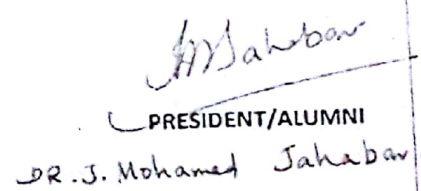 Jahabar
PRESIDENT/ALUMNI
DR. J. Mohamed Jahabar